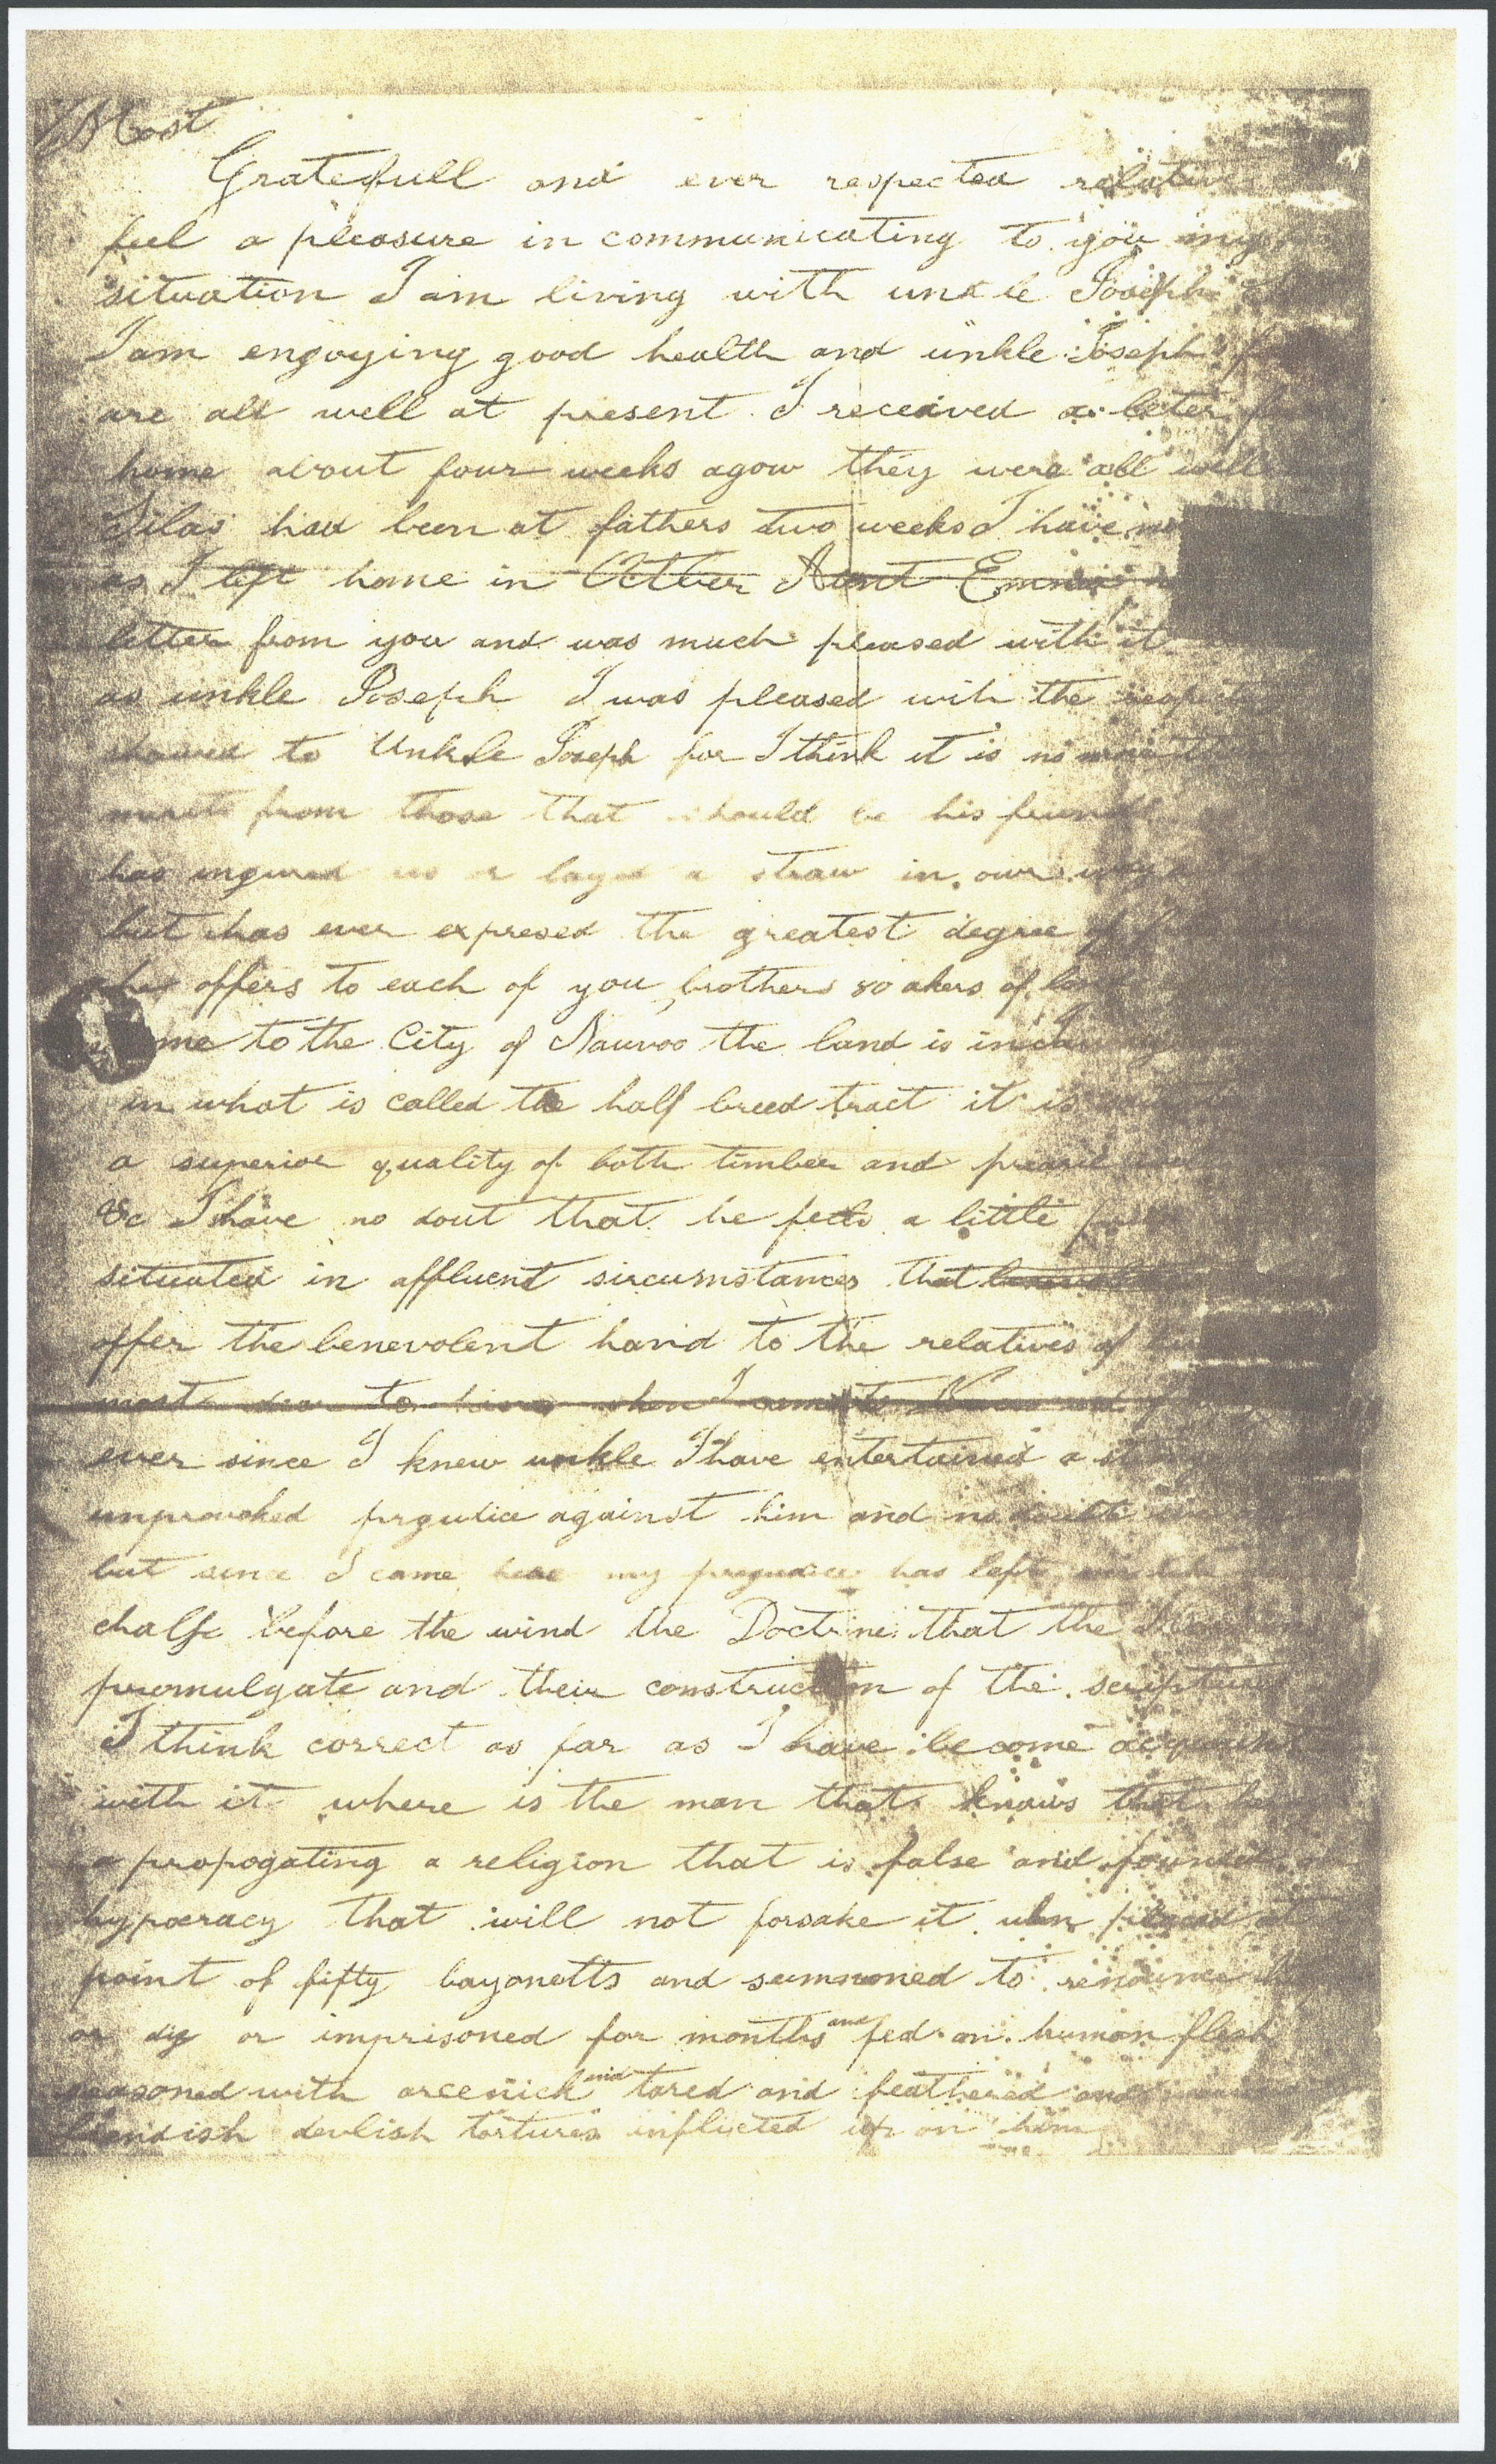 Most
Gratefull and ever respected relative
feel a pleasure in communicating to you my
situation I am living with unkle Joseph
I am engoying good health and unkle Joseph
are all well at present I received a leter
home about four weeks agow they were all well
Silas had been at fathers two weeks I have
as I left home in Aunt Emma
letter from you and was much pleased with it
as unkle Joseph I was pleased with the
showed to Unkle Joseph for I think it is no more
from those that should be his friends
has ingured us or layed a straw in our way
but has ever expresed the greatest degree of
he offers to each of you brothers 80 akers of land
me to the City of Nauvoo the land is in
in what is called the half breed tract it is
a superior quality of both timber and prearie
&c I have no dout that he feels a little
situated in affluent sircumstances that
offer the benevolent hand to the relatives of
most dear to him when I came to
ever since I knew unkle I have entertained a strong
unprovoked prgudice against him and no
but since I came here my pregudice has left
chalf before the wind the Doctrine that the
promulgate and their construction of the scriptures
I think correct as far as I have become acquaint
with it where is the man that knows that
a propogating a religion that is false and founded
hypocracy that will not forsake it when placed at
point of fifty bayonetts and summoned to renounce
or die or imprisoned for months and fed on human flesh
seasoned with arcenick and tared and feathered and
fiendish devlish tortures inflicted up on him